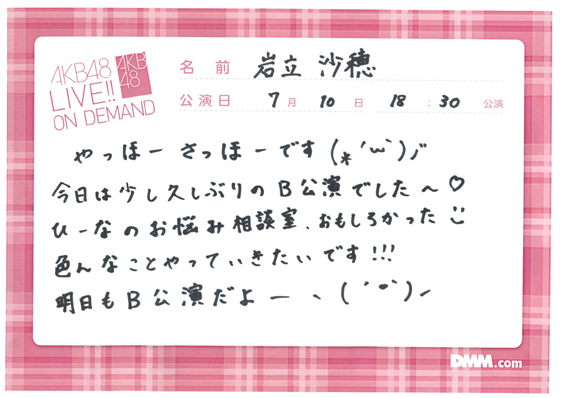 AKB48
LIVE!!
ON DEMAND
AKB
48
名前 岩立 沙穂
公演日 7月 10日 18:30 公演
やっほー さっほーです (*'ω`)ノ
今日は少し久しぶりのB公演でした〜♡
ひーなのお悩み相談室、おもしろかった
色んなことやっていきたいです!!!
明日もB公演だよー、(´ー`)ノ
DMM.com